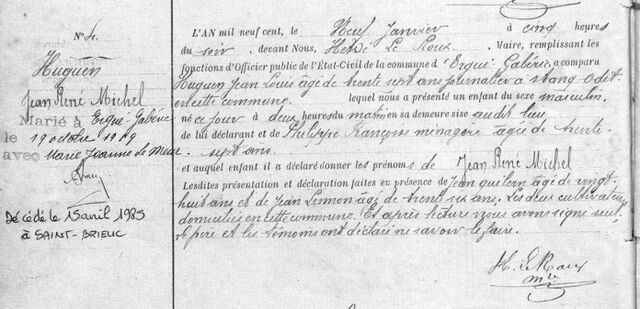 N.º 4
Huguen
Jean René Michel
Marié à Ergué-Gabéric
le 19 octobre 1929
avec Marie Jeanne Le Meur
Décédé le 15 avril 1985
à SAINT-BRIEUC
L'AN mil neuf cent, le Neuf Janvier à cinq heures
du soir, devant Nous, Hervé Le Roux, Maire, remplissant les
fonctions d'Officier public de l'État-Civil de la commune d'Ergué Gabéric, a comparu
Huguen Jean Louis âgé de trente sept ans journalier à Stang-Odet
en cette commune, lequel nous a présenté un enfant du sexe masculin,
né ce jour à deux heures du matin en sa demeure sise audit lieu
de lui déclarant et de Philippe Françoise ménagère âgée de trente-
sept ans.
et auquel enfant il a déclaré donner les prénoms de Jean René Michel
Lesdites présentation et déclaration faites en présence de Jean âgé de vingt
huit ans et de Jean âgé de trente six ans. Les deux cultivateurs
domiciliés en cette commune. Et après lecture nous avons signé seul
le père et les témoins ont déclaré ne savoir le faire.
H. Le Roux